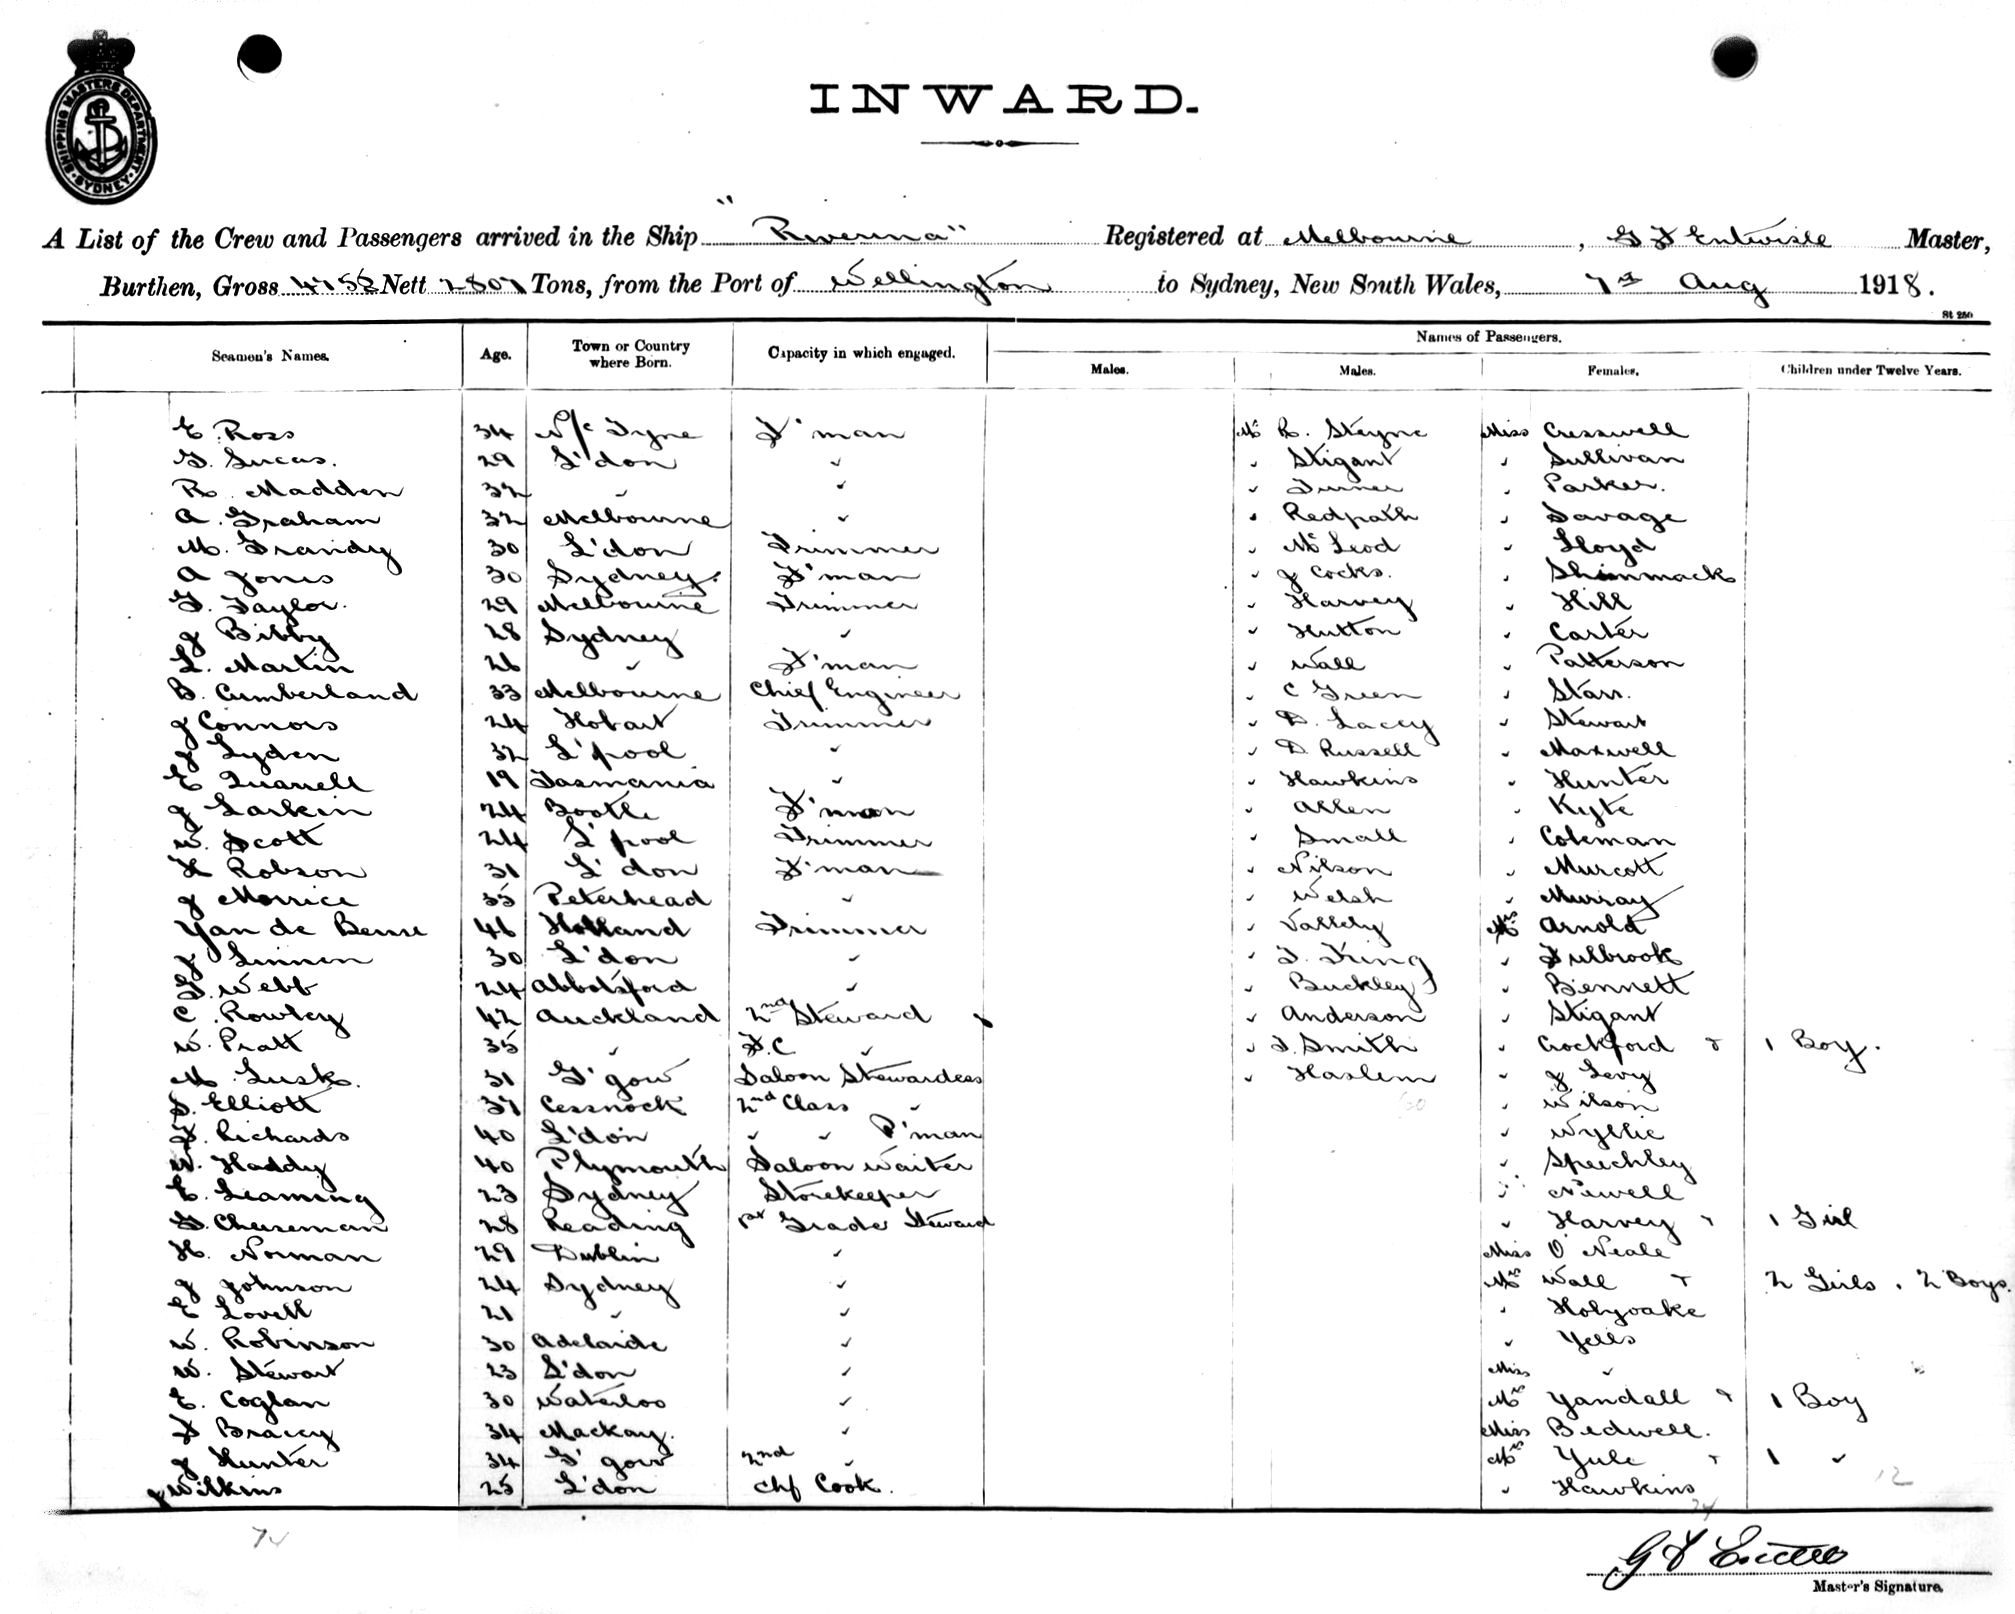 SHIPPING MASTERS DEPARTMENT. SYDNEY.
INWARD.
A List of the Crew and Passengers arrived in the Ship "Riverina" Registered at Melbourne, G F Entwisle Master,
Burthen, Gross Nett Tons, from the Port of Wellington to Sydney, New South Wales, Aug 1918.
St 250
Names of Passengers.
Seamen's Names. Age. Town or Country where Born. Capacity in which engaged. Males. Males. Females. Children under Twelve Years.
E. Ross 34 N/c Tyne F'man Mr R. Steyne Miss Cresswell
G. Lucas. 29 L'don " " Stigant " Sullivan
R. Madden 32 " " " Turner " Parker.
A. Graham 32 Melbourne " " Redpath " Savage
M. Grandy 30 L'don Trimmer " McLeod " Lloyd
A Jones 30 Sydney. F'man " J Cocks. " Shimmack
G. Taylor. 29 Melbourne Trimmer " Harvey " Hill
J Bibby 28 Sydney " " Hutton " Carter
L. Martin 26 " F'man " Wall " Patterson
B. Cumberland 33 Melbourne Chief Engineer " C Green " Starr.
J Connors 24 Hobart Trimmer " D. Lacey " Stewart
J Lyden 32 L'pool " " D Russell " Maxwell
E Quarrell 19 Tasmania " " Hawkins " Hunter
J Larkin 24 Bootle F'man " Allen " Kyte
W. Scott 24 L'pool Trimmer " Small " Coleman
H Robson 31 L'don F'man " Nilson " Murcott
J Morrice 35 Peterhead " " Welsh " Murray
Van de 46 Holland Trimmer " Vallely Mrs Arnold
J Linnen 30 L'don " " T. King " Fulbrook
G. Webb 24 Abbotsford " " Buckley " Bennett
C. Rowley 42 Auckland 2nd Steward " Anderson " Stigant
W. Pratt 35 " F.C " " J. Smith " Crockford & 1 Boy.
M. Lusk. 31 G'gow Saloon Stewardess " Haslem " J Levy
S. Elliott 37 Cessnock 2nd Class " " Wilson
F. Richards 40 L'don " " P'man " Wyllie
W. Haddy 40 Plymouth Saloon Waiter " Speechley
E. Leaming 23 Sydney Storekeeper " Newell
G. Cheeseman 28 Reading 1st Grade Steward " Harvey & 1 Girl
H. Norman 29 Dublin " Miss O'Neale
J Johnson 24 Sydney " Mrs Wall & 2 Girls, 2 Boys.
E Lovell 21 " " " Holyoake
W. Robinson 30 Adelaide " " Yells
W. Stewart 23 L'don " Miss "
E. Coglan 30 Waterloo " Mrs Yandall & 1 Boy
F Bracey 34 Mackay. " Miss Bedwell.
J Hunter 34 G'gow 2nd " Mrs Yule & 1 "
J Wilkins 25 L'don Chf Cook. " Hawkins
12
Master's Signature.